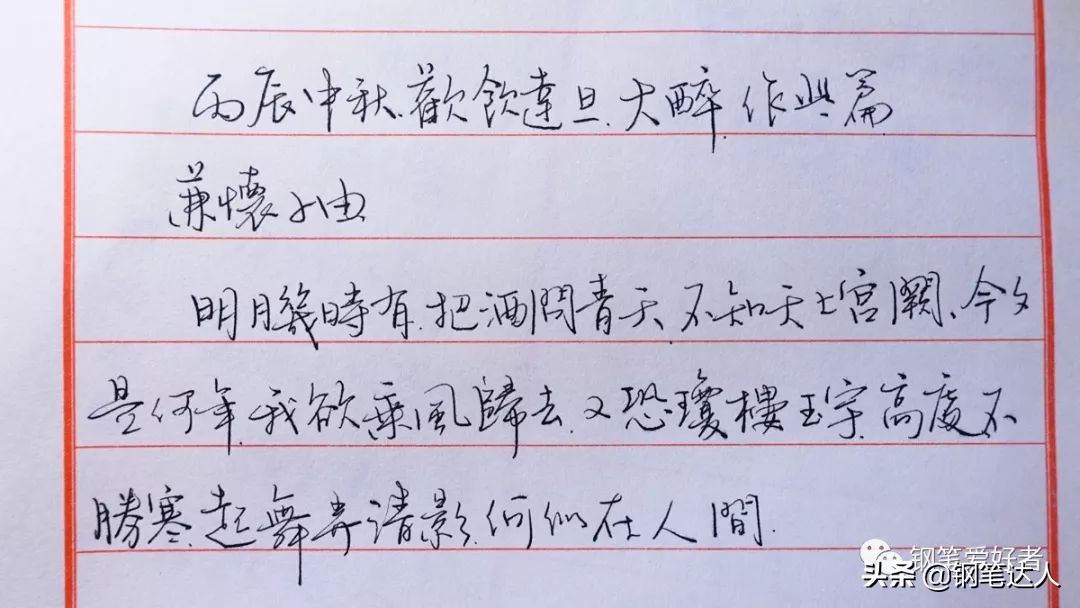 丙辰中秋.歡飲達旦.大醉.作此篇
兼懷子由
明月幾時有.把酒問青天.不知天上宮闕、今夕
是何年.我欲乘風歸去.又恐瓊樓玉宇.高處不
勝寒.起舞弄清影.何似在人間.
钢笔爱好者
头条 @钢笔达人